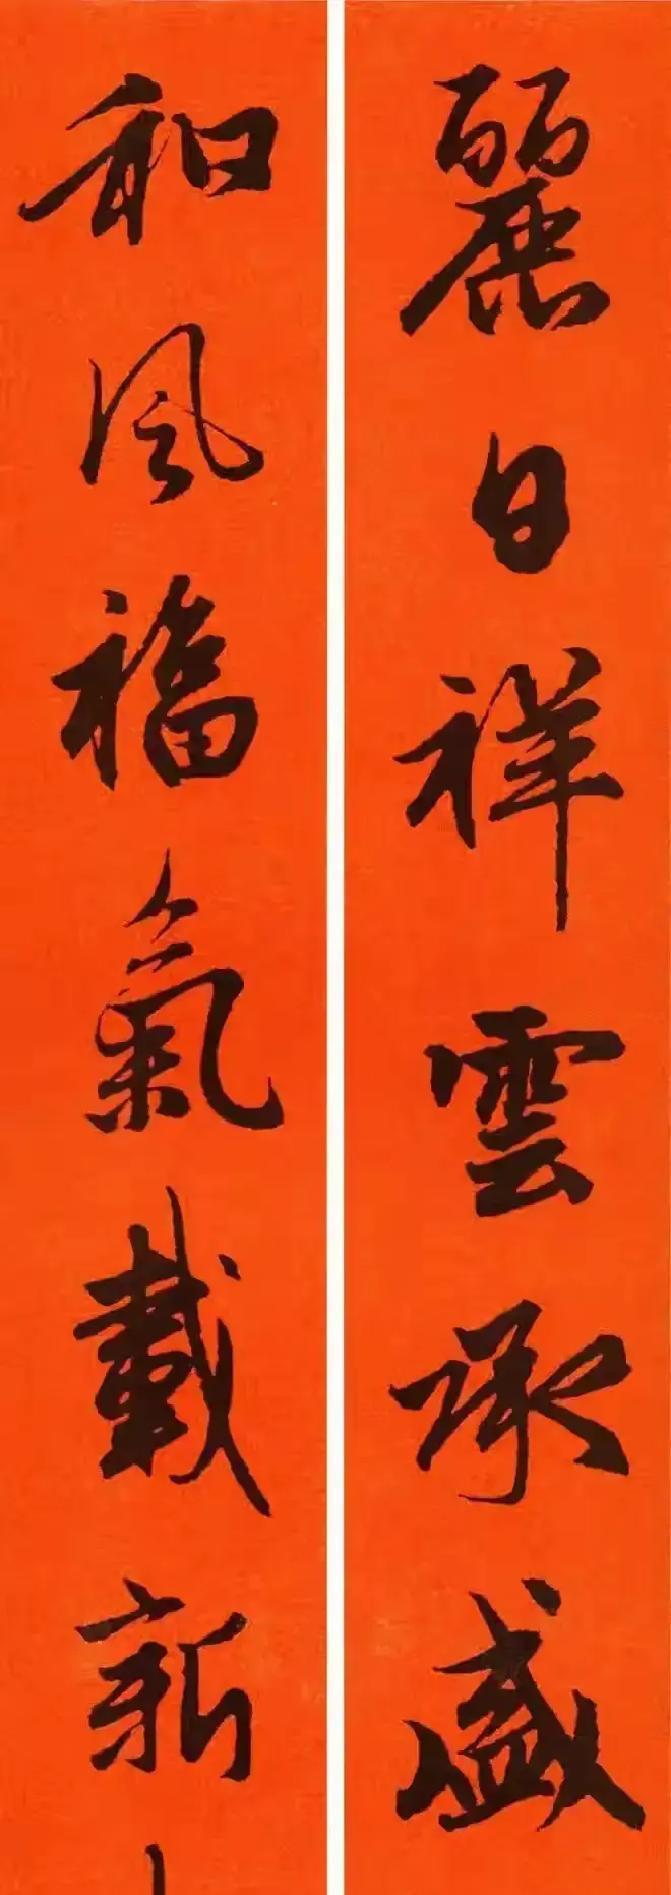 麗日祥雲承盛
和風福氣載新